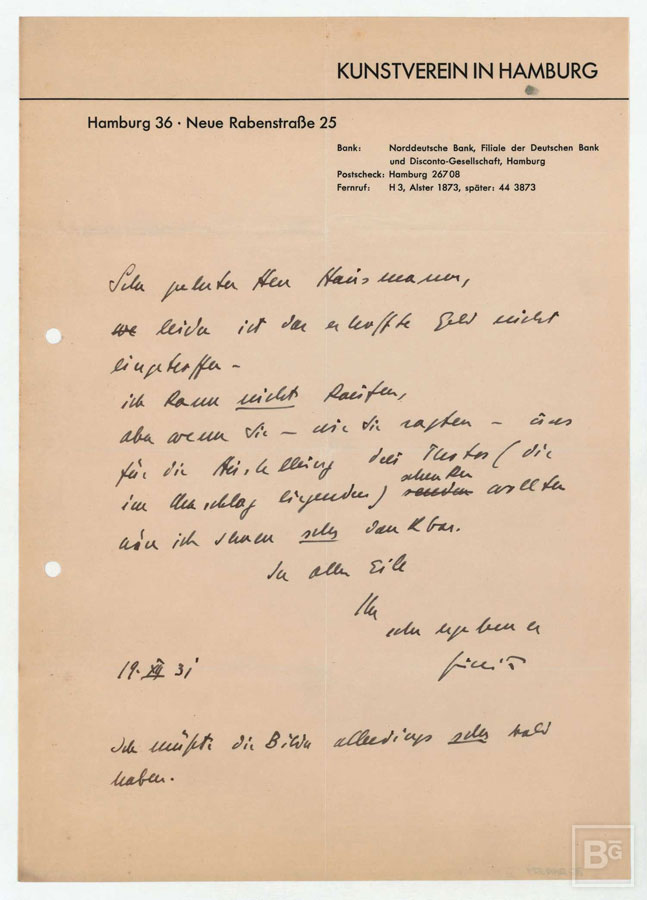 KUNSTVEREIN IN HAMBURG
Hamburg 36 · Neue Rabenstraße 25
Bank: Norddeutsche Bank, Filiale der Deutschen Bank
und Disconto-Gesellschaft, Hamburg
Postscheck: Hamburg 26708
Fernruf: H 3, Alster 1873, später: 44 3873
Sehr geehrter Herr Hausmann,
leider ist das erhoffte Geld nicht
eingetroffen –
ich kann nicht kaufen,
aber wenn Sie – wie Sie sagten – uns
für die Ausstellung drei Photos (die
im Umschlag liegenden) schenken wollten
wäre ich Ihnen sehr dankbar.
In aller Eile
Ihr
sehr ergebener
19. XII 31
Ich müßte die Bilder allerdings sehr bald
haben.
BG